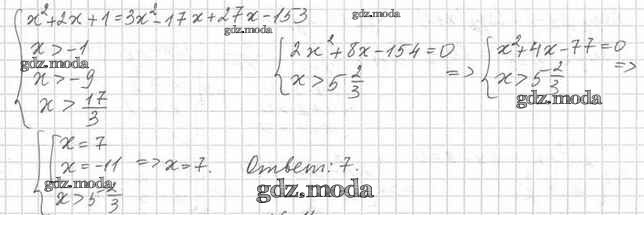 x²+2x+1=3x²-17x+27x-153
gdz.moda
gdz.moda
x>-1
gdz.moda
x>-9
x>17/3
2x²+8x-154=0
x>5 2/3
=>
x²+4x-77=0
x>5 2/3
=>
gdz.moda
x=7
x=-11
=>x=7.
Ответ: 7.
gdz.moda
gdz.moda
x>5 2/3